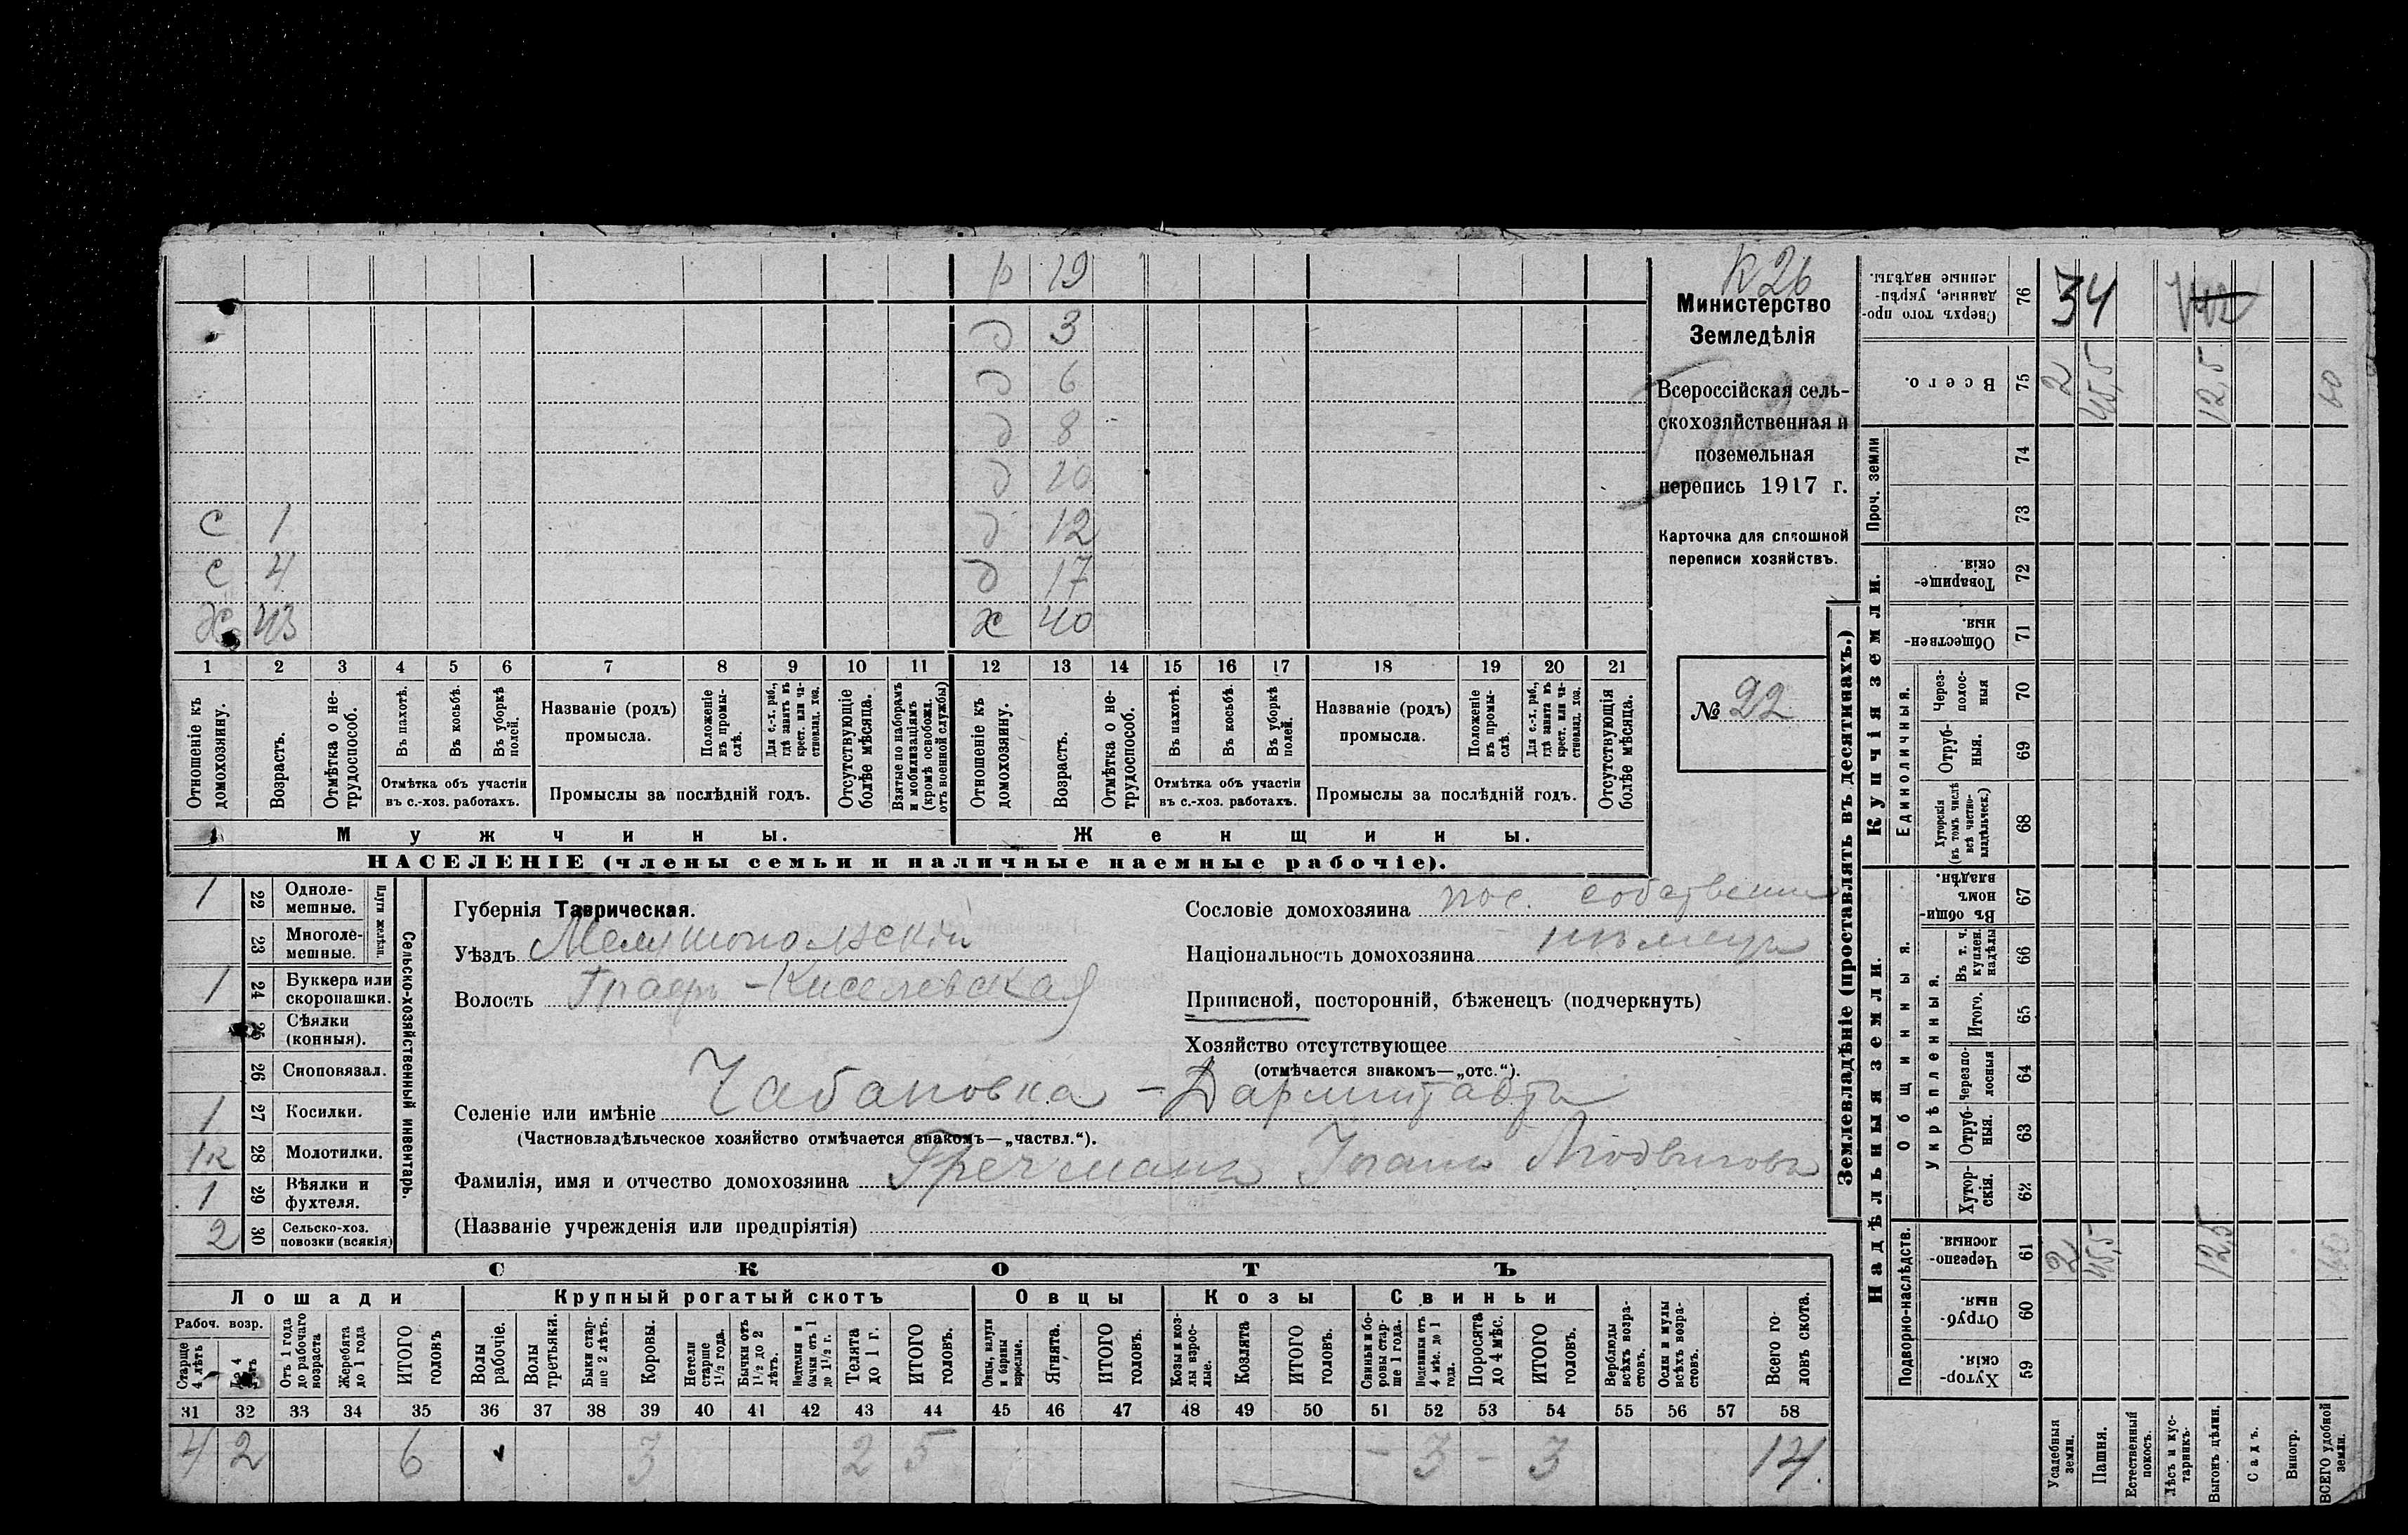 р 19
д 3
д 6
д 8
д 10
с 1 д 12
с 4 д 17
х 43 х 40
1 2 3 4 5 6 7 8 9 10 11 12 13 14 15 16 17 18 19 20 21
Отношеніе къ домохозяину.
Возрастъ.
Отмѣтка о не-трудоспособ.
Въ пахотѣ.
Въ косьбѣ.
Въ уборкѣ полей.
Отмѣтка объ участіи
въ с.-хоз. работахъ.
Названіе (родъ)
промысла.
Положеніе въ промы-слѣ.
Для с.-х. раб., гдѣ занятъ въ крест. или ча-стновлад. хоз.
Промыслы за послѣдній годъ.
Отсутствующіе болѣе мѣсяца.
Взятые по наборамъ и мобилизаціямъ (кромѣ освобожд. отъ военной службы)
Отношеніе къ домохозяину.
Возрастъ.
Отмѣтка о не-трудоспособ.
Въ пахотѣ.
Въ косьбѣ.
Въ уборкѣ полей.
Отмѣтка объ участіи
въ с.-хоз. работахъ.
Названіе (родъ)
промысла.
Положеніе въ промы-слѣ.
Для с.-х. раб., гдѣ занята въ крест. или ча-стновлад. хоз.
Промыслы за послѣдній годъ.
Отсутствующія болѣе мѣсяца.
Мужчины. Женщины.
НАСЕЛЕНІЕ (члены семьи и наличные наемные рабочіе).
К 26
Министерство
Земледѣлія
Всероссійская сель-
скохозяйственная и
поземельная
перепись 1917 г.
Карточка для сплошной
переписи хозяйствъ.
№ 22
Сельско-хозяйственный инвентарь.
Плуги желѣзн.
1 22 Одноле-мешные.
23 Многоле-мешные.
1 24 Буккера или скоропашки.
25 Сѣялки (конныя).
26 Сноповязал.
1 27 Косилки.
1к 28 Молотилки.
1 29 Вѣялки и фухтеля.
2 30 Сельско-хоз. повозки (всякія)
Губернія Таврическая.
Уѣздъ Мелитопольскій
Волость Графъ-Киселевская
Сословіе домохозяина пос. собственн
Національность домохозяина нѣмецъ
Приписной, посторонній, бѣженецъ (подчеркнуть)
Хозяйство отсутствующее
(отмѣчается знакомъ—„отс.“).
Селеніе или имѣніе Чабановка - Дармштадтъ
(Частновладѣльческое хозяйство отмѣчается знакомъ—„частвл.“).
Фамилія, имя и отчество домохозяина Гречманъ Іоганъ Людвиговъ
(Названіе учрежденія или предпріятія)
СКОТЪ
Лошади Крупный рогатый скотъ Овцы Козы Свиньи
Рабоч. возр.
Старше 4 лѣтъ
До 4 лѣтъ
Отъ 1 года до рабочаго возраста
Жеребята до 1 года
ИТОГО головъ
Волы рабочіе.
Волы третьяки.
Быки стар-ше 2 лѣтъ.
Коровы.
Нетели старше 1½ года.
Бычки отъ 1½ до 2 лѣтъ.
Подтелки и бычки отъ 1 до 1½ г.
Телята до 1 г.
ИТОГО головъ.
Овцы, валухи и бараны взрослые.
Ягнята.
ИТОГО головъ.
Козы и коз-лы взрос-лые.
Козлята
ИТОГО головъ.
Свиньи и бо-ровы стар-ше 1 года.
Подсвинки отъ 4 мѣс. до 1 года.
Поросята до 4 мѣс.
ИТОГО головъ.
Верблюды всѣхъ возра-стовъ.
Ослы и мулы всѣхъ возра-стовъ.
Всего го-ловъ скота.
31 32 33 34 35 36 37 38 39 40 41 42 43 44 45 46 47 48 49 50 51 52 53 54 55 56 57 58
4 2 6 3 2 5 - 3 - 3 14.
Землевладѣніе (проставлять въ десятинахъ.)
Купчія земли.
Надѣльныя земли.
Сверхъ того про-данные, укрѣп-ленные надѣлы. 76 34
Всего. 75 2 45,5 12,5 60
Проч. земли 74
73
Товарище-скія. 72
Обществен-ныя. 71
Единоличныя.
Через-полос-ныя 70
Отруб-ныя. 69
Хуторскія (въ томъ числѣ всѣ частно-владѣльческ.) 68
Общинныя.
Въ общин-номъ владѣн. 67
Укрѣпленныя.
Въ т. ч. куплен. надѣлы 66
Итого. 65
Черезпо-лосныя 64
Отруб-ныя. 63
Хутор-скія. 62
Подворно-наслѣдств.
Черезпо-лосныя. 61 2 45,5 12,5 60
Отруб-ныя. 60
Хутор-скія. 59
Усадебныя земли.
Пашня.
Естественный покосъ.
Лѣсъ и кус-тарникъ.
Выгонъ цѣлин.
Садъ.
Виногр.
ВСЕГО удобной земли.